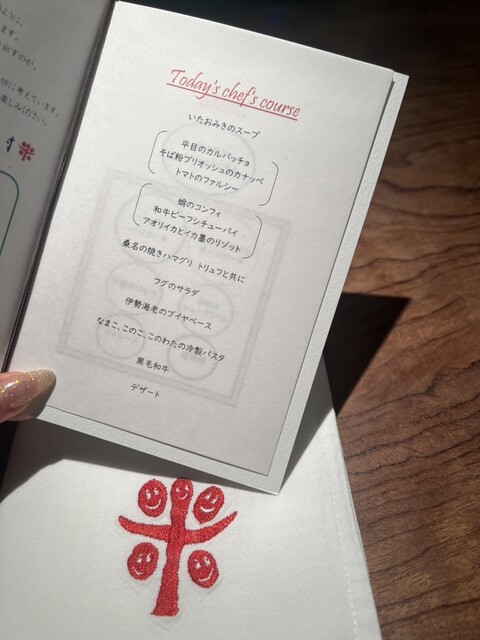 ように、
ます。
出すのが、
切に考えています。
楽しみください。
Today's chef's course
いたおみきのスープ
平目のカルパッチョ
そば粉ブリオッシュのカナッペ
トマトのファルシー
蛸のコンフィ
和牛ビーフシチューパイ
アオリイカとイカ墨のリゾット
桑名の焼きハマグリ トリュフと共に
フグのサラダ
伊勢海老のブイヤベース
なまこ、このこ、このわたの冷製パスタ
黒毛和牛
デザート